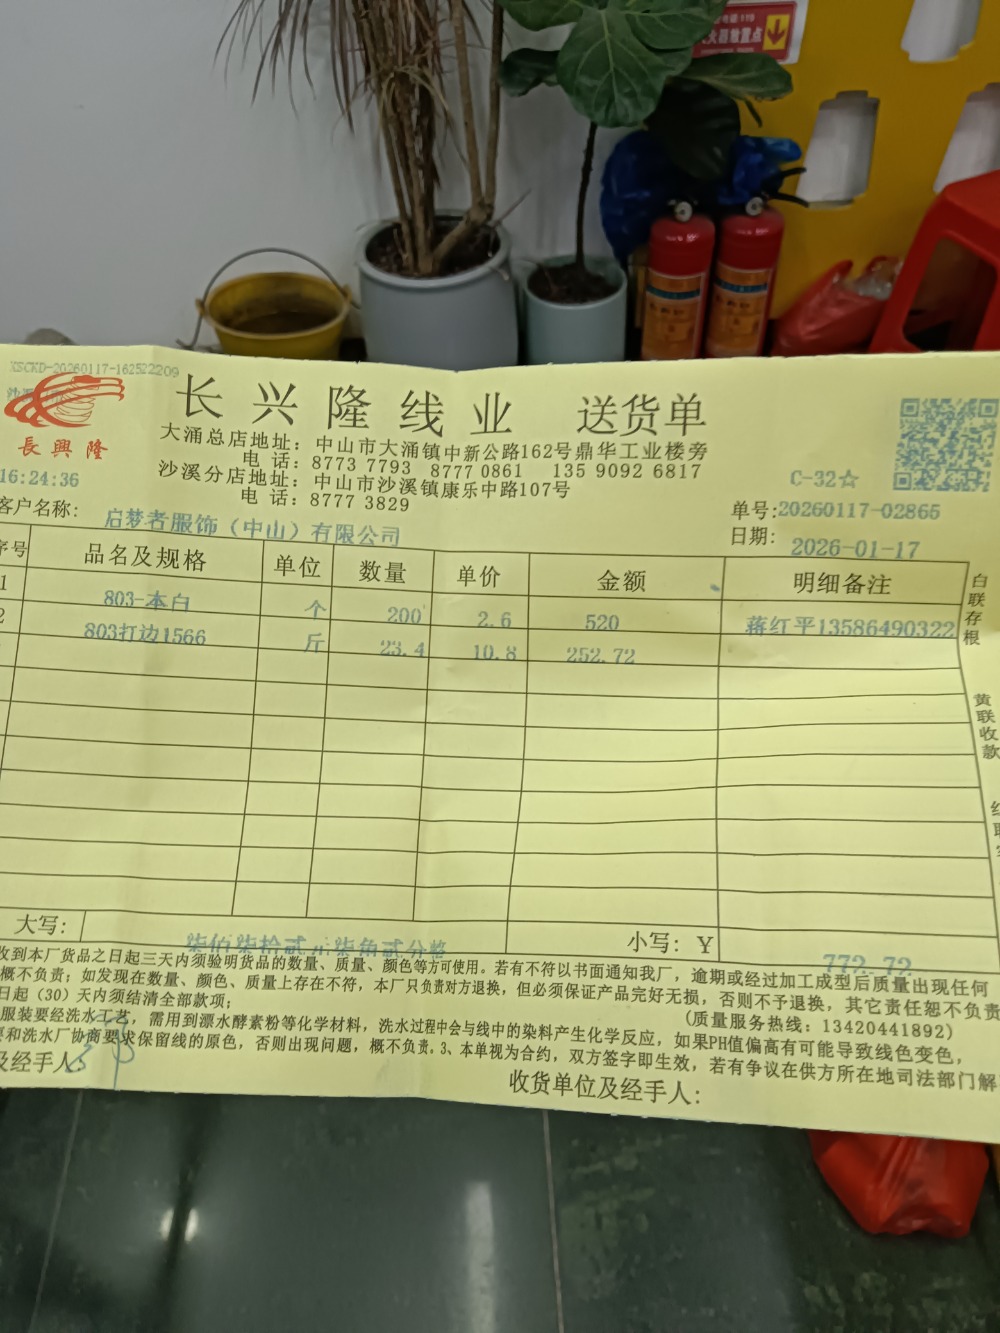 火器放置点
XSCKD-20260117-162522209
長興隆
长兴隆线业 送货单
大涌总店地址：中山市大涌镇中新公路162号鼎华工业楼旁
电 话：8773 7793 8777 0861 135 9092 6817
沙溪分店地址：中山市沙溪镇康乐中路107号
电 话：8777 3829
16:24:36
C-32☆
客户名称： 启梦者服饰（中山）有限公司
单号:20260117-02865
日期： 2026-01-17
序号 品名及规格 单位 数量 单价 金额 明细备注
1 803-本白 个 200 2.6 520 蒋红平13586490322
2 803打边1566 斤 23.4 10.8 252.72
白联存根
黄联收款
大写： 柒佰柒拾贰元柒角贰分整 小写：Y 772.72
收到本厂货品之日起三天内须验明货品的数量、质量、颜色等方可使用。若有不符以书面通知我厂，逾期或经过加工成型后质量出现任何
概不负责；如发现在数量、颜色、质量上存在不符，本厂只负责对方退换，但必须保证产品完好无损，否则不予退换，其它责任恕不负责
日起（30）天内须结清全部款项；
(质量服务热线：13420441892)
服装要经洗水工艺，需用到漂水酵素粉等化学材料，洗水过程中会与线中的染料产生化学反应，如果PH值偏高有可能导致线色变色，
要和洗水厂协商要求保留线的原色，否则出现问题，概不负责。3、本单视为合约，双方签字即生效，若有争议在供方所在地司法部门解
及经手人：
收货单位及经手人：